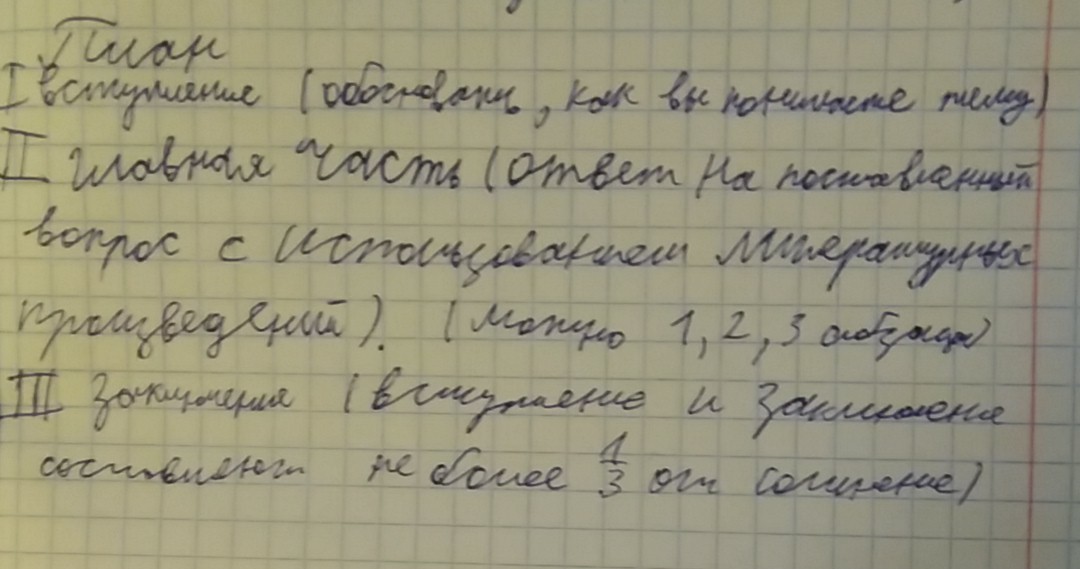 План
I вступление (обосновать, как вы понимаете тему)
II Главная часть (ответ на поставленный
вопрос с использованием литературных
произведений). (можно 1, 2, 3 абзаца)
III Заключения (вступление и заключение
составляют не более 1/3 от сочинение)